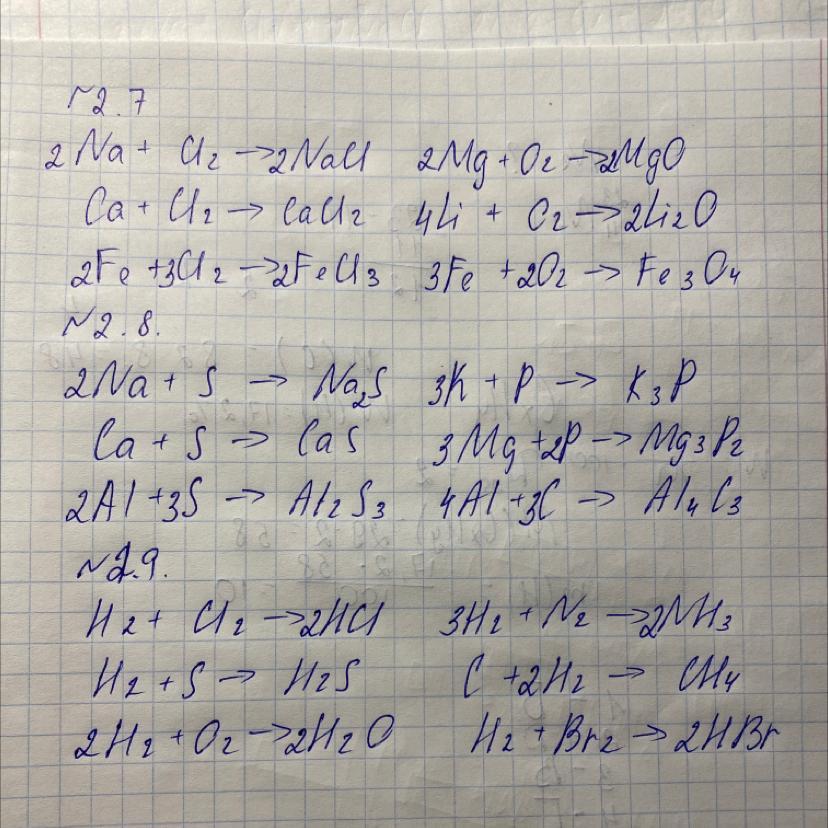 №2.7
2Na + Cl₂ → 2NaCl 2Mg + O₂ → 2MgO
Ca + Cl₂ → CaCl₂ 4Li + O₂ → 2Li₂O
2Fe + 3Cl₂ → 2FeCl₃ 3Fe + 2O₂ → Fe₃O₄
№2.8.
2Na + S → Na₂S 3K + P → K₃P
Ca + S → CaS 3Mg + 2P → Mg₃P₂
2Al + 3S → Al₂S₃ 4Al + 3C → Al₄C₃
№2.9.
H₂ + Cl₂ → 2HCl 3H₂ + N₂ → 2NH₃
H₂ + S → H₂S C + 2H₂ → CH₄
2H₂ + O₂ → 2H₂O H₂ + Br₂ → 2HBr